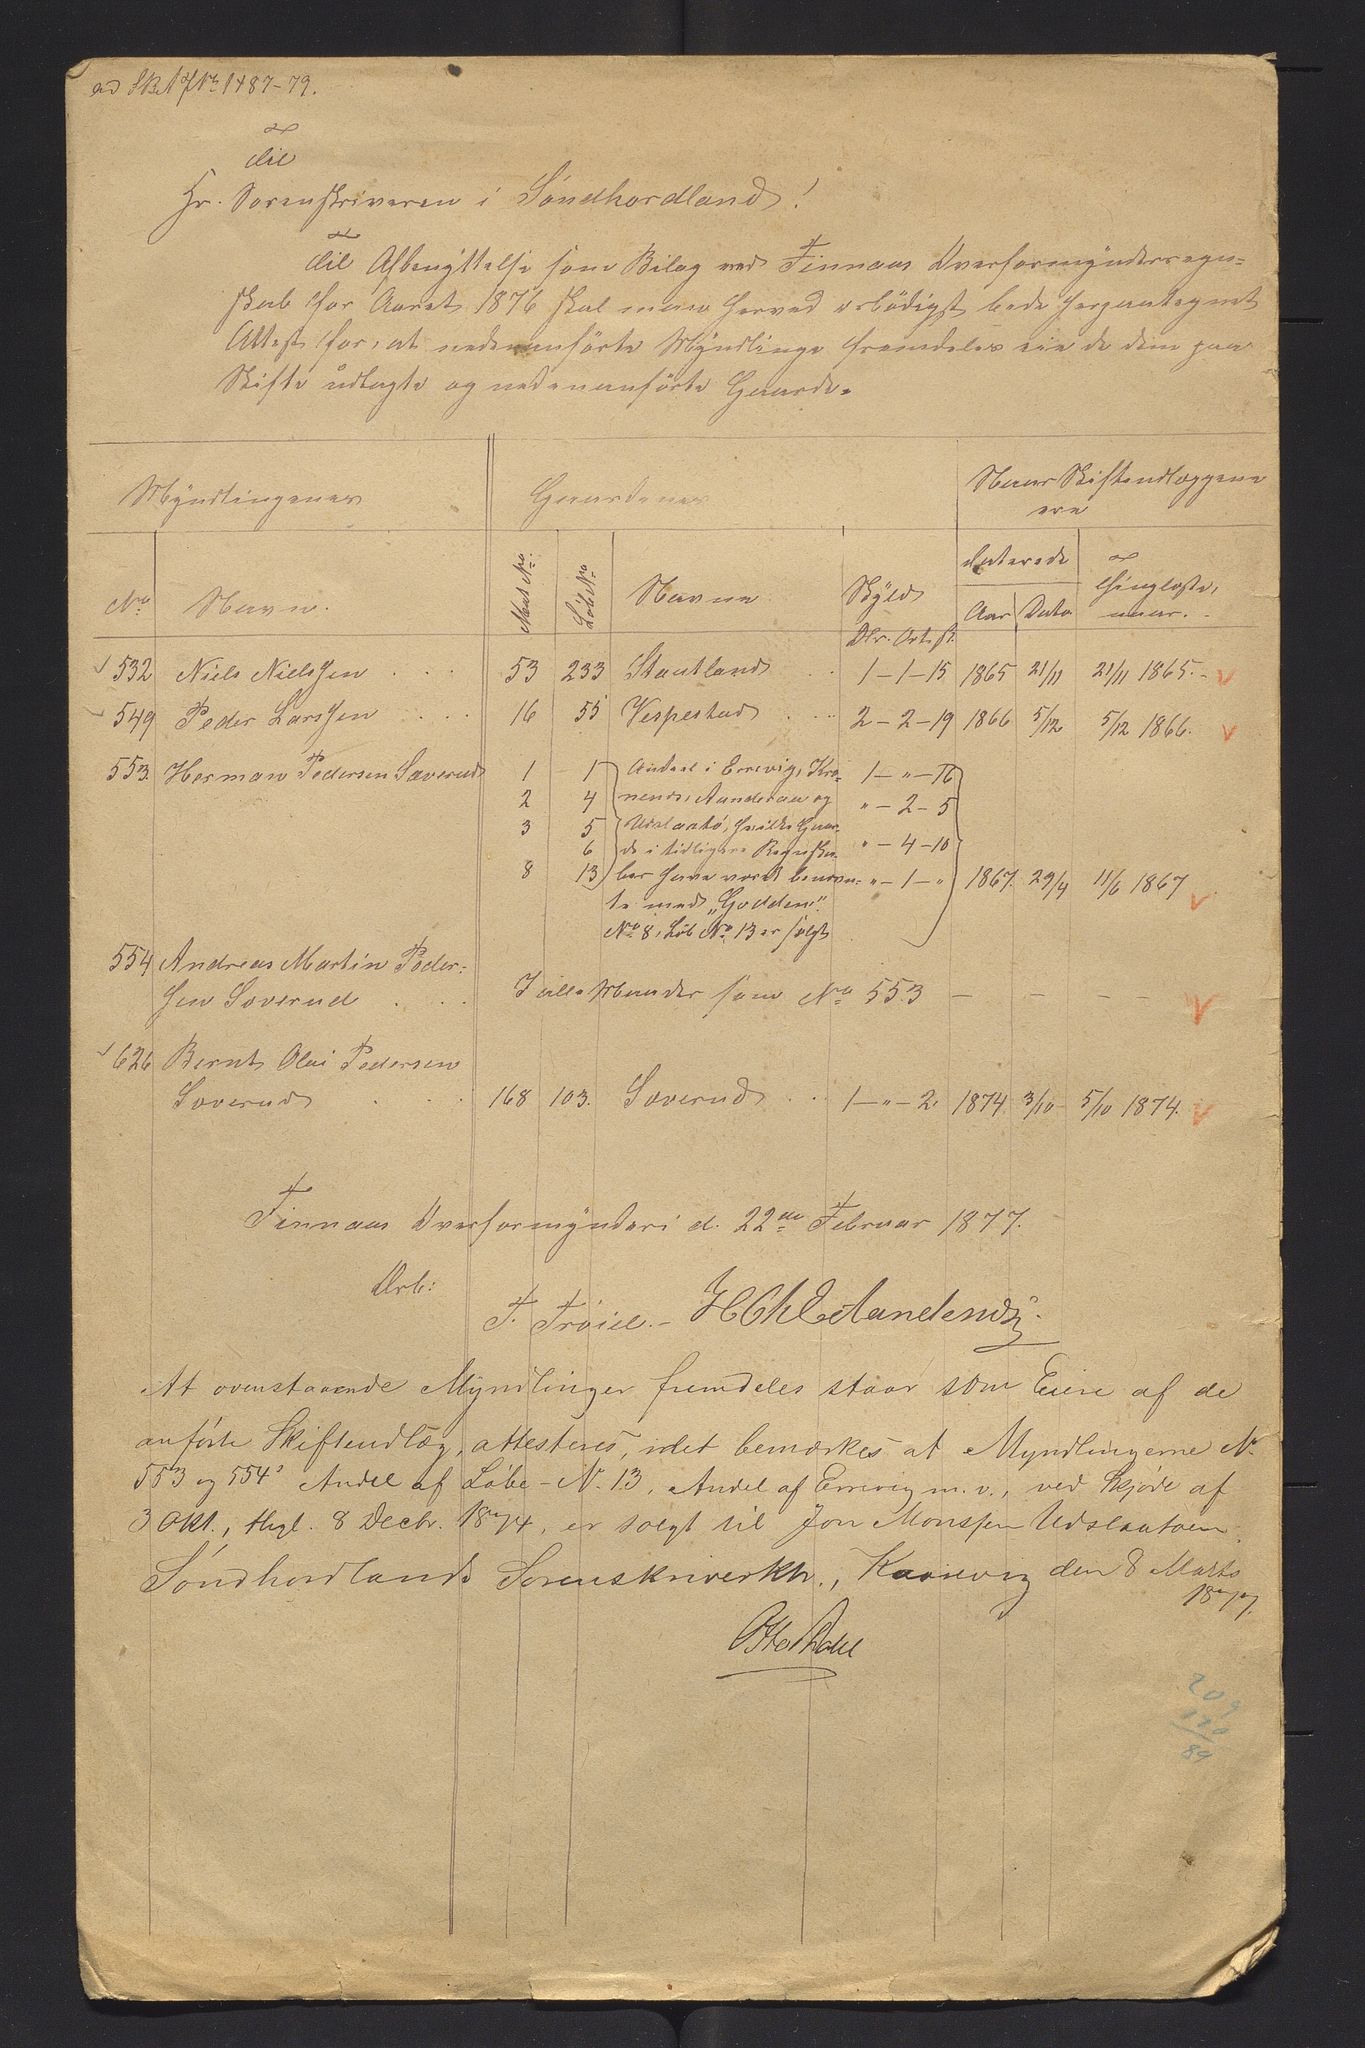 ad SkNf No 1487-79.
Til
Hr. Sorenskriveren i Söndhordland!
Til Afbenyttelse som Bilag ved Finnaas Overformynderregn-
skab for Aaret 1876 skal man herved erbödigst bede herpaategnet
Attest for, at nedenanförte Myndlinge fremdeles eie de dem paa
Skifte udlagte og nedenanförte Gaarde.
Myndlingenes Gaardenes Naar Skifteudlæggene
ere
daterede Thinglæste,
naar.
No Navn. Mat. No. Löb No Navne Skyld Aar Dato
Dlr. Ort. ß.
532 Niels Nielssen . . . 53 233 Stautland . . 1 - 1 - 15 1865 21/11 21/11 1865. -
549 Peder Larssen . . . 16 55 Vespestad . . . 2 - 2 - 19 1866 5/12 5/12 1866.
553. Herman Pedersen Sæverud 1 1 Andeel i Errevig, Kro- 1 - " - 16
2 4 nende, Aanderaa og " - 2 - 5
3 5 Udslaatö, hvilke Gaar-
6 de i tidligere Regnska- " - 4 - 10
8 13 ber have været benævn- " - 1 - " 1867. 29/4 11/6 1867
te med "Godden".
No 8, Löb No 13 er solgt
554 Andreas Martin Peder-
sen Soverud . . . I alle Maader som No 553 - - - -
626 Bernt Olai Pedersen
Soverud . . . 168 103. Sæverud . . 1 - " - 2. 1874 3/10 5/10 1874.
Finnaas Overformynderi d. 22de Februar 1877.
Ærb:
F. Tröiel. -
At ovenstaaende Myndlinger fremdeles staar som Eiere af de
anförte Skifteudlæg, attesteres, idet bemærkes at Myndlingerne No
553 og 554s Andel af Löbe-No. 13, Andel af Errevig m. v., ved Skjöde af
3 Okt., thgl. 8 Decbr. 1874, er solgt til Jon Monssen Udslaatoen.
Söndhordlands Sorenskriverktr., Kaarevig den 8 Marts
1877.
Otto Dahl
209
120
89